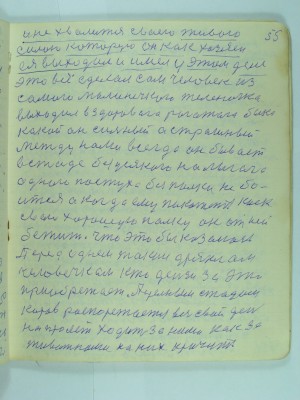 и не хвалится своего живого 55
силою которую он как хозяин
ся выходил и имел у этом деле
это всё сделал сам человек из
самого маленечкого теленочка
выходил здорового рогатого быка
какой он сильный а страшный
между нами всегда он бывает
в стаде без всякого
одного пастуха без палки не бо-
ится а когда ему покажеть как
свою хорошую палку он от ней
бежить. Что это бы казалось
Перед одним таким
человечком кто деньги за это
приобретает. Любыми стадами
коров распоряжается весь свой день
напролет ходить за ними как за
животными на них кричить